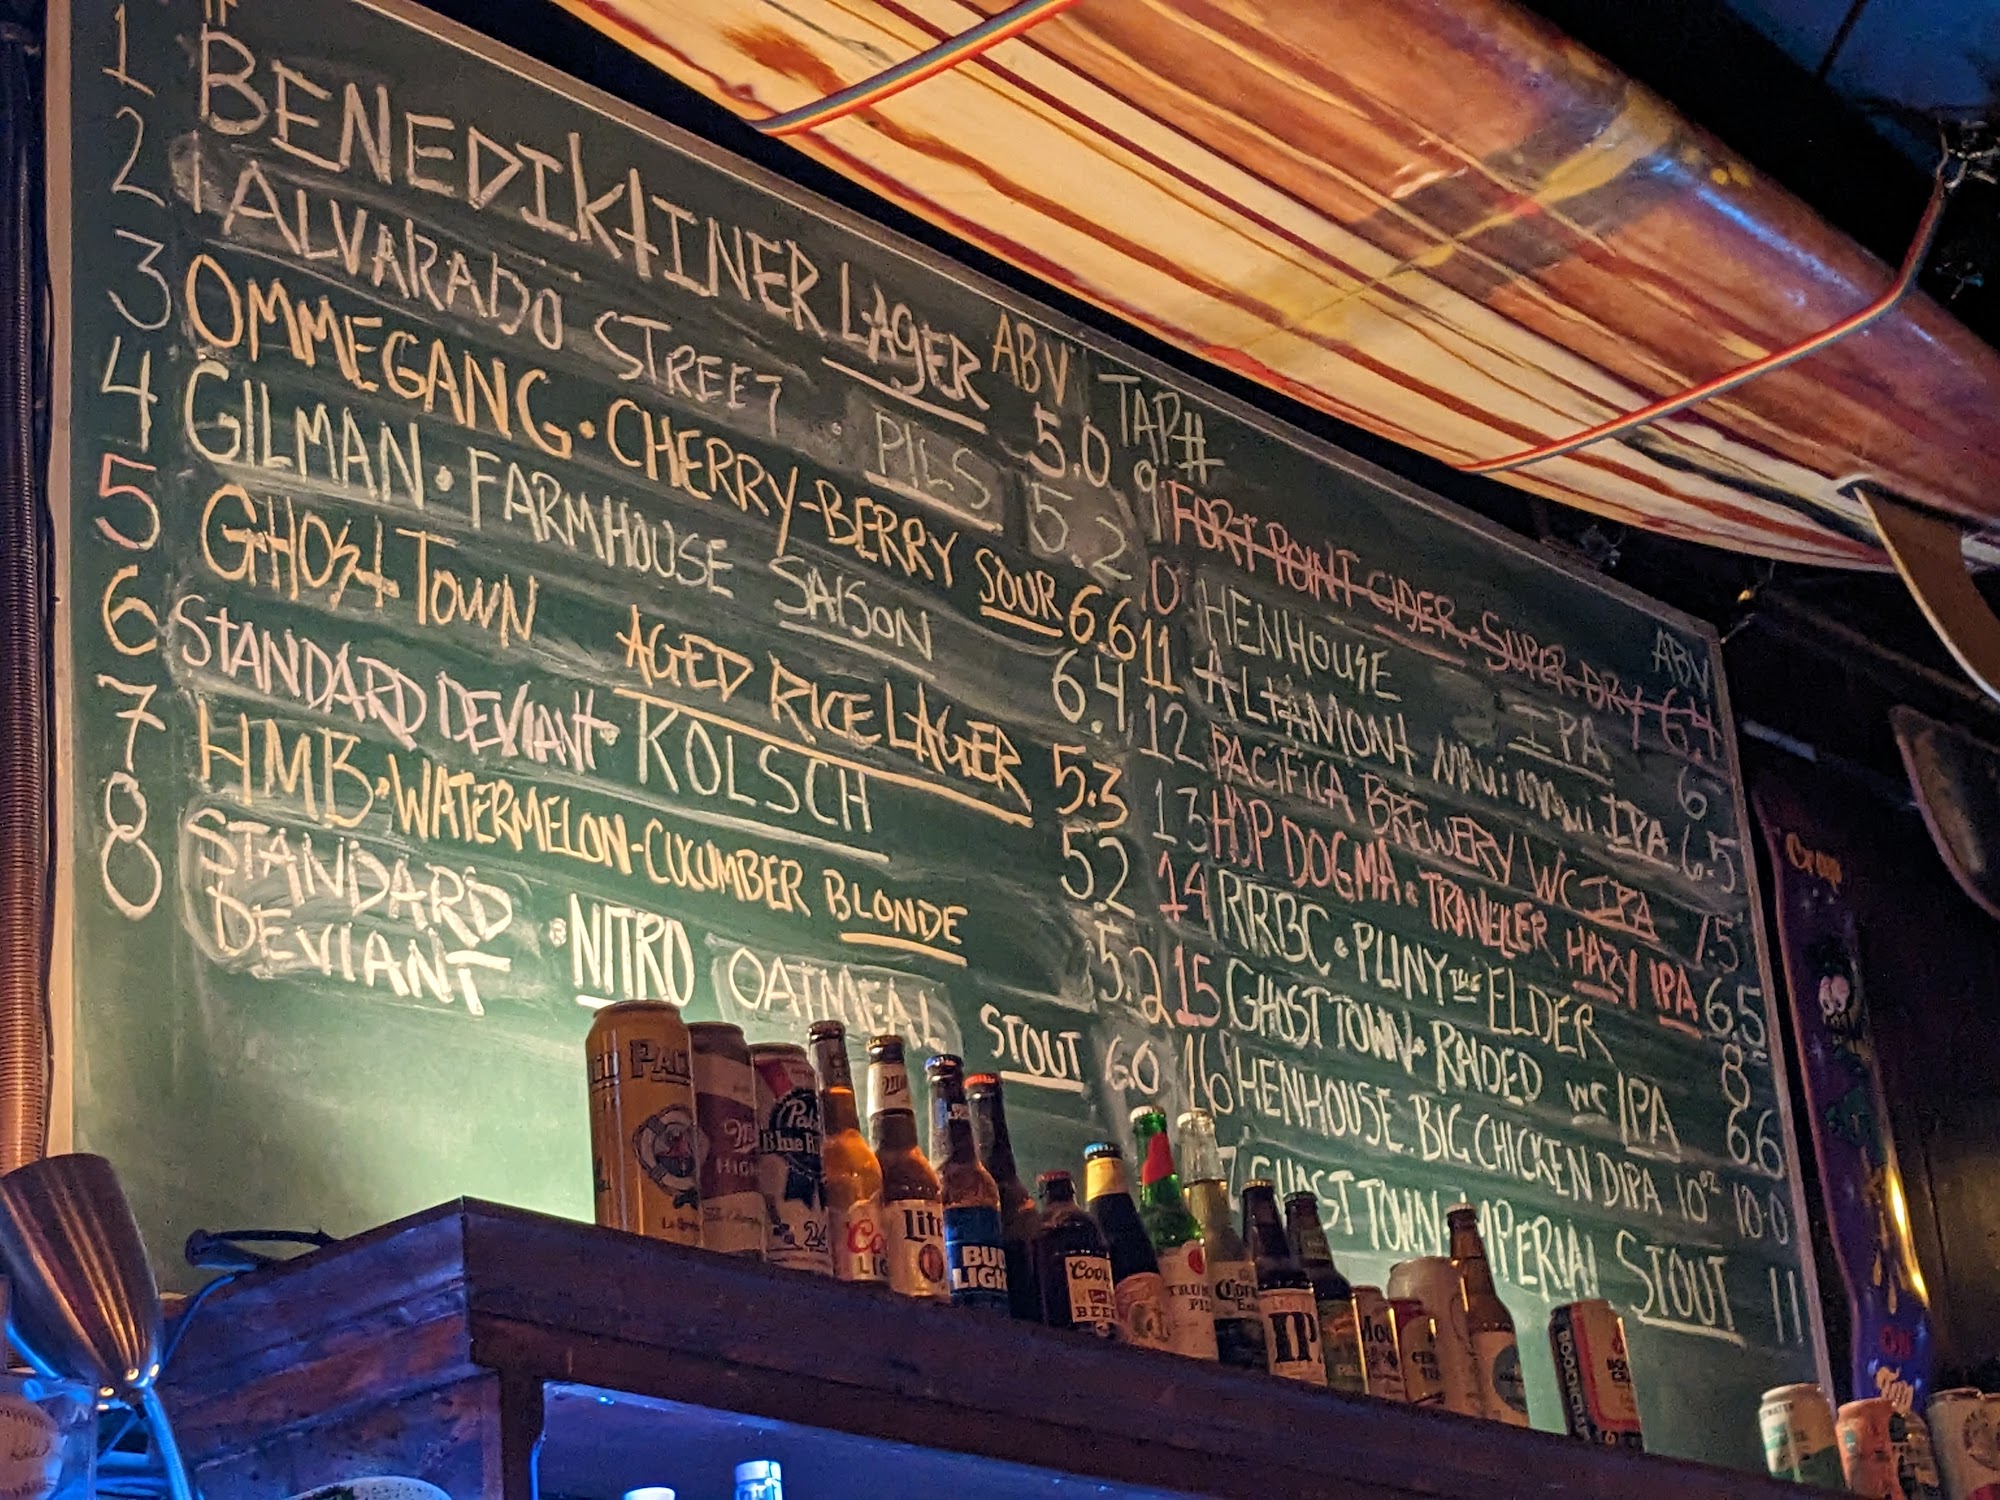 #
1 BENEDIKTINER LAGER 5.0
2 ALVARADO STREET · PILS 5.2
3 OMMEGANG · CHERRY-BERRY SOUR 6.6
4 GILMAN · FARMHOUSE SAISON 6.4
5 GHOST TOWN AGED RICE LAGER 5.3
6 STANDARD DEVIANT · KOLSCH 5.2
7 HMB · WATERMELON-CUCUMBER BLONDE 5.2
8 STANDARD DEVIANT · NITRO OATMEAL STOUT 6.0
ABV
TAP#
ABV
9 FORT POINT CIDER · SUPER DRY 6.4
10 HENHOUSE IPA 6.
11 ALTAMONT MAUI MAUI IPA 6.5
12 PACIFICA BREWERY WC IPA 7.5
13 HOP DOGMA · TRAVELLER HAZY IPA 6.5
14 RRBC · PLINY THE ELDER 8
15 GHOST TOWN · RAIDED WC IPA 6.6
16 HENHOUSE · BIG CHICKEN DIPA 10oz 10.0
GHOST TOWN · IMPERIAL STOUT 11
Blue
Lite
BUD
LIGHT
BEER
IPA